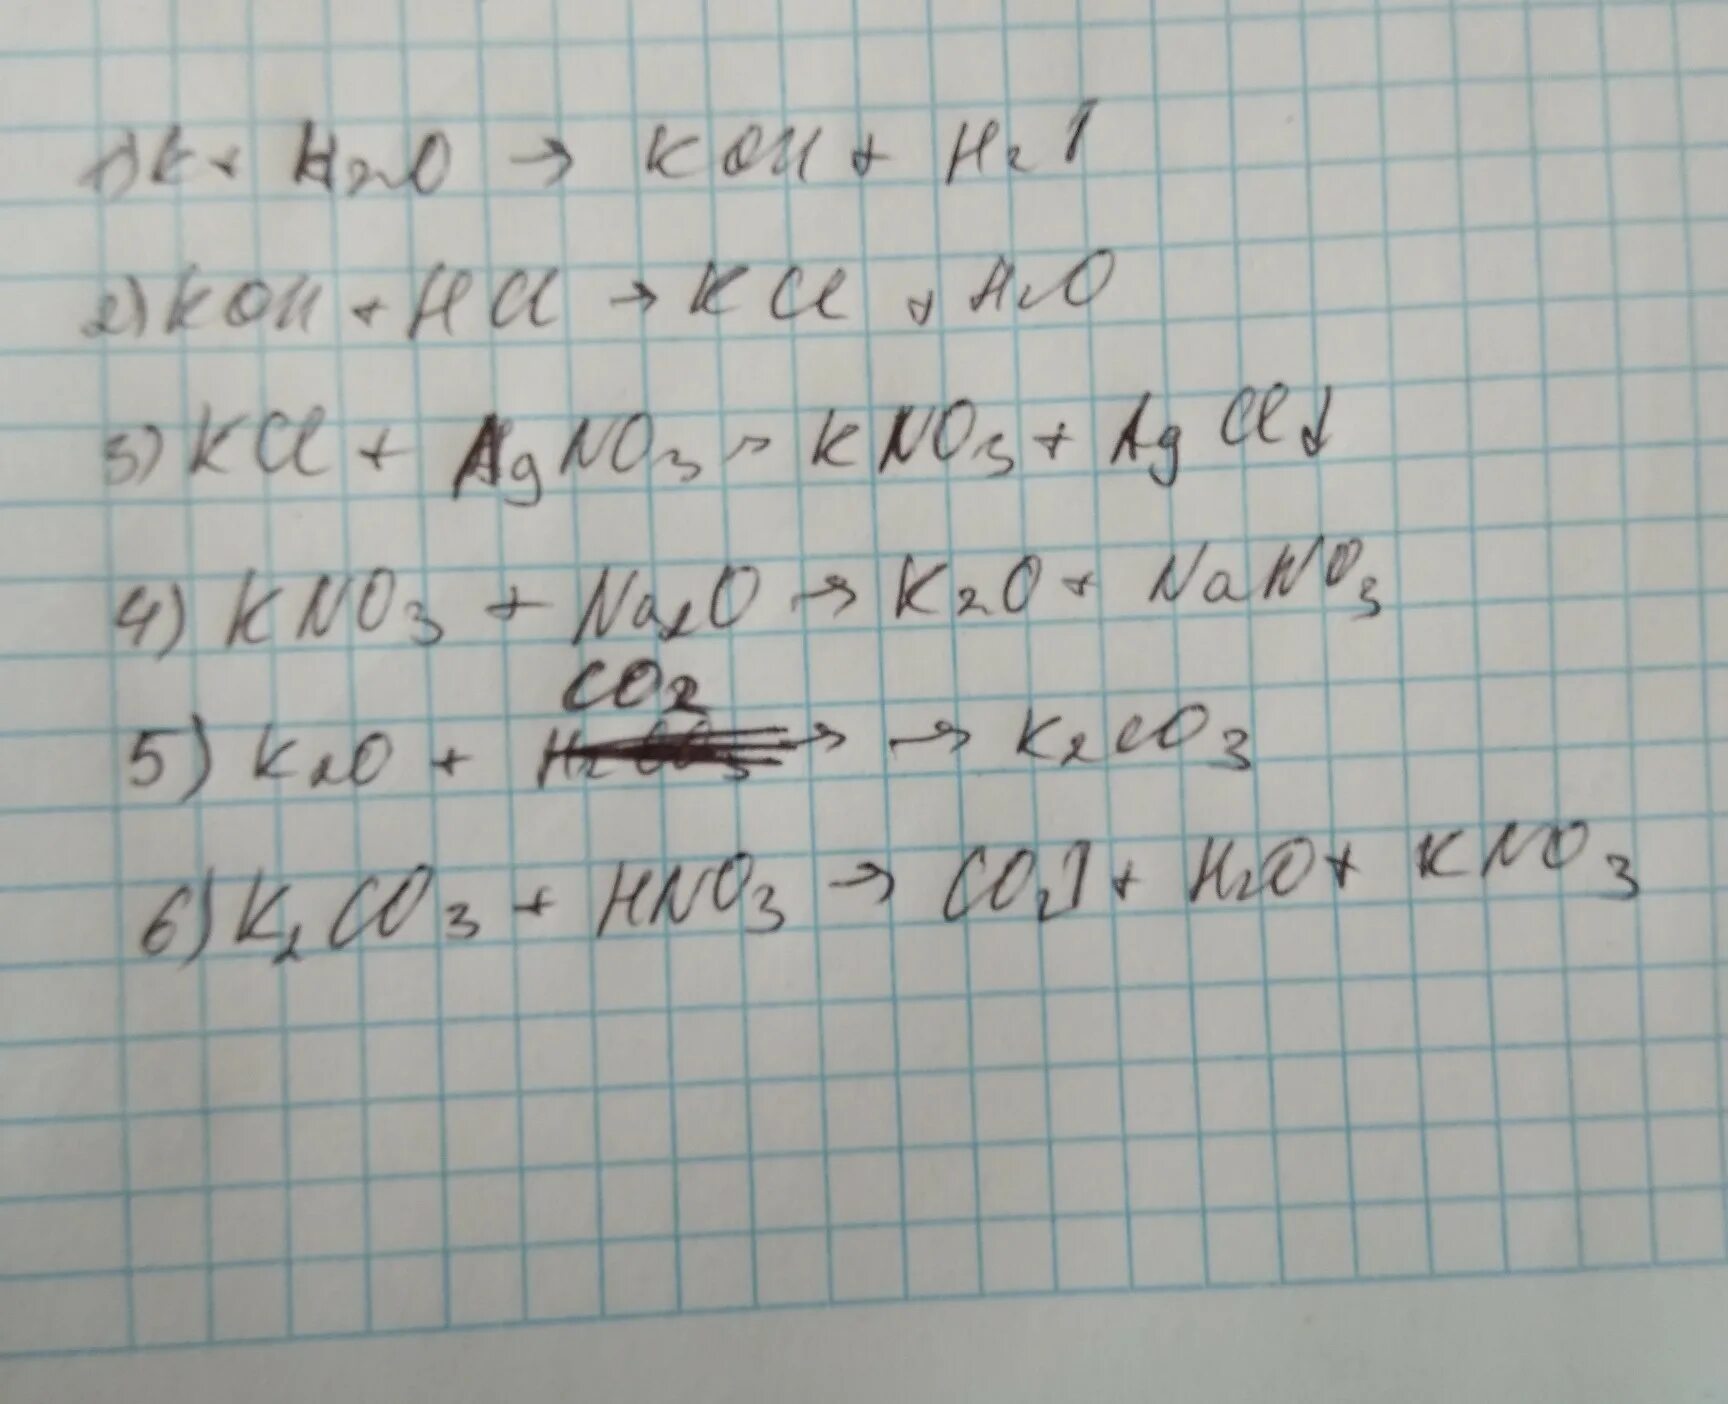 1) K + H₂O → KOH + H₂↑
2) KOH + HCl → KCl + H₂O
3) KCl + AgNO₃ → KNO₃ + AgCl↓
4) KNO₃ + Na₂O → K₂O + NaNO₃
CO₂
5) K₂O + → → K₂CO₃
6) K₂CO₃ + HNO₃ → CO₂↑ + H₂O + KNO₃